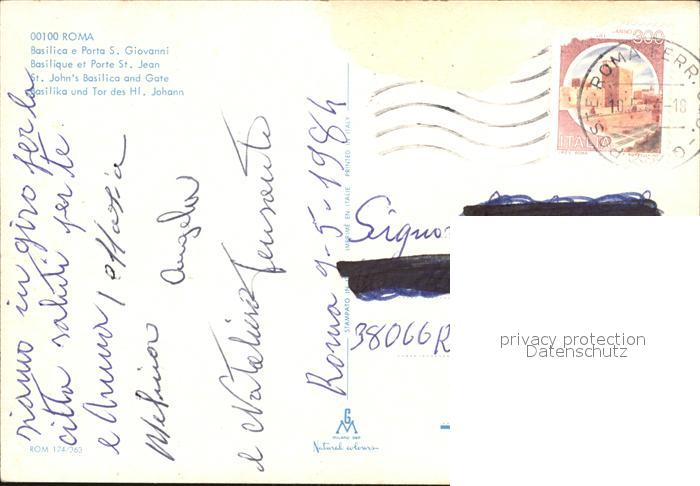 00100 ROMA
Basilica e Porta S. Giovanni
Basilique et Porte St. Jean
St. John's Basilica and Gate
Basilika und Tor des Hl. Johann
siamo in giro per la
città saluti per te
e Anna
Melina Angela
e Nataliena
Roma 9-5-1984
STAMPATO IN IMPRIMÉ EN ITALIE PRINTED IN ITALY
300
ITALIA
POSTE ROMA FERR
Signor
38066 R
privacy protection
Datenschutz
GM
MILANO
Natural colours
ROM 174/263